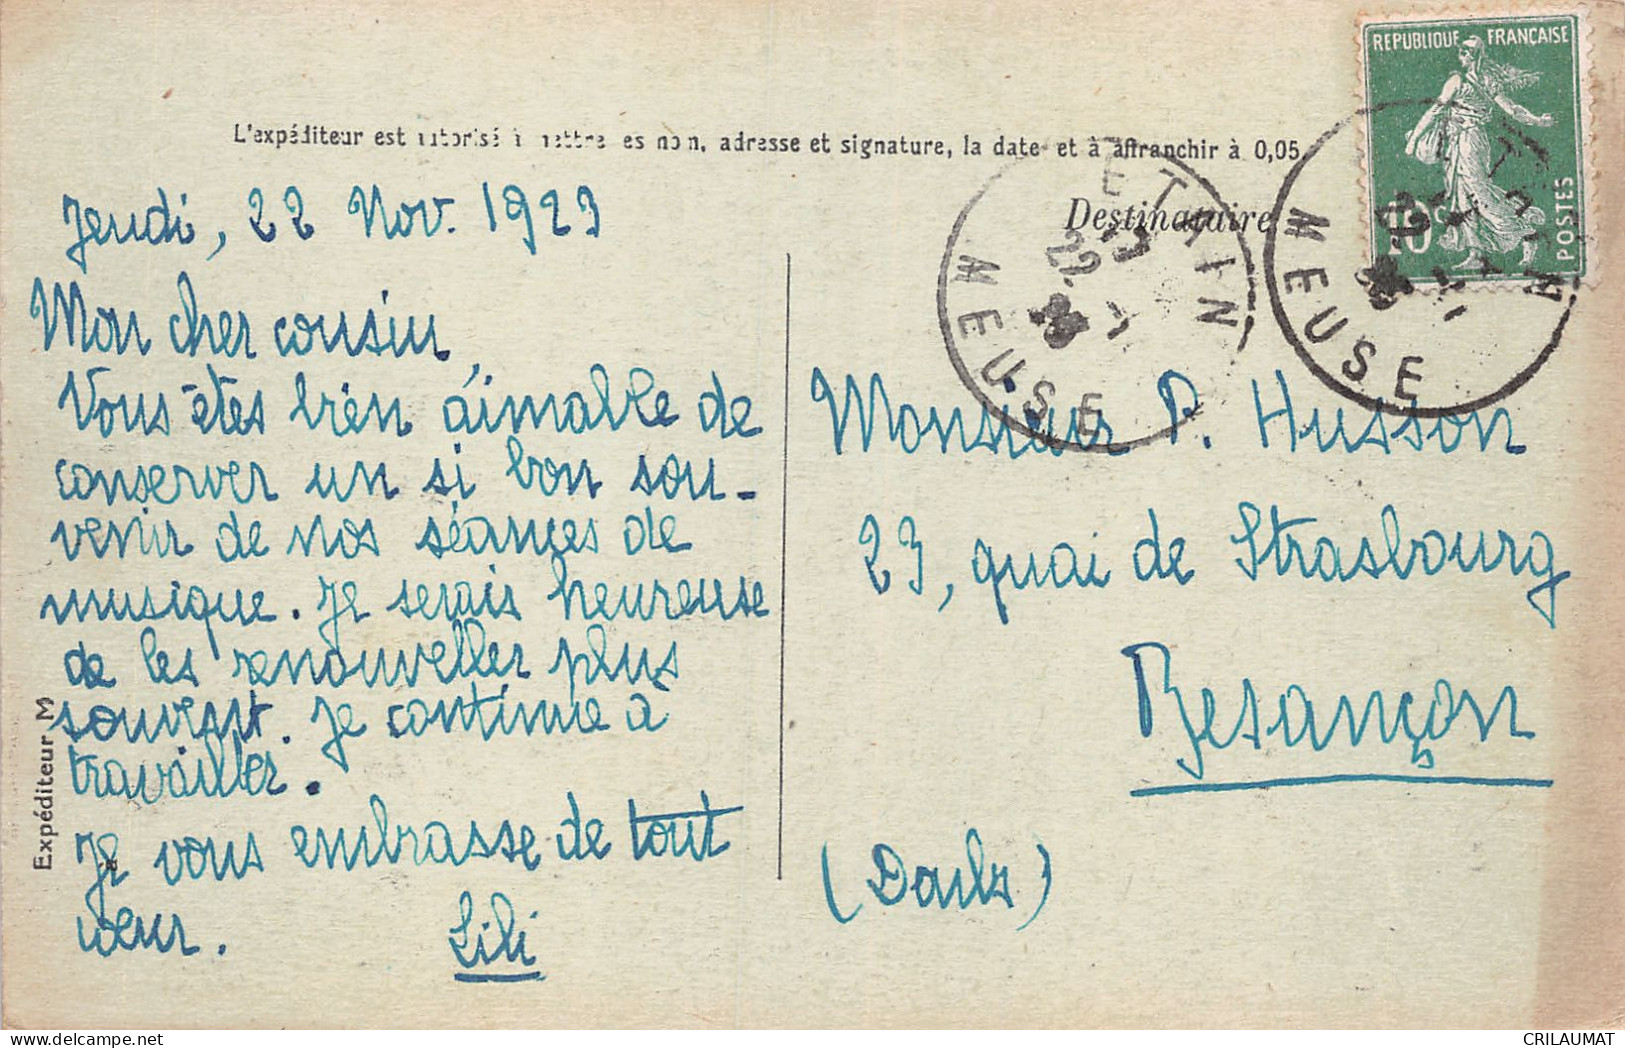 REPUBLIQUE FRANÇAISE
10c
POSTES
L'expéditeur est autorisé à mettre ses nom, adresse et signature, la date et à affranchir à 0,05
Destinataire
ETAIN
22
MEUSE
ETAIN
22
MEUSE
Jeudi, 22 Nov. 1923
Mon cher cousin,
Vous êtes bien aimable de
conserver un si bon sou-
venir de nos séances de
musique. Je serais heureuse
de les renouveller plus
souvent. Je continue à
travailler.
Je vous embrasse de tout
cœur.
Lili
Expéditeur M
Monsieur P. Husson
23, quai de Strasbourg
Besançon
(Doubs)
CRILAUMAT